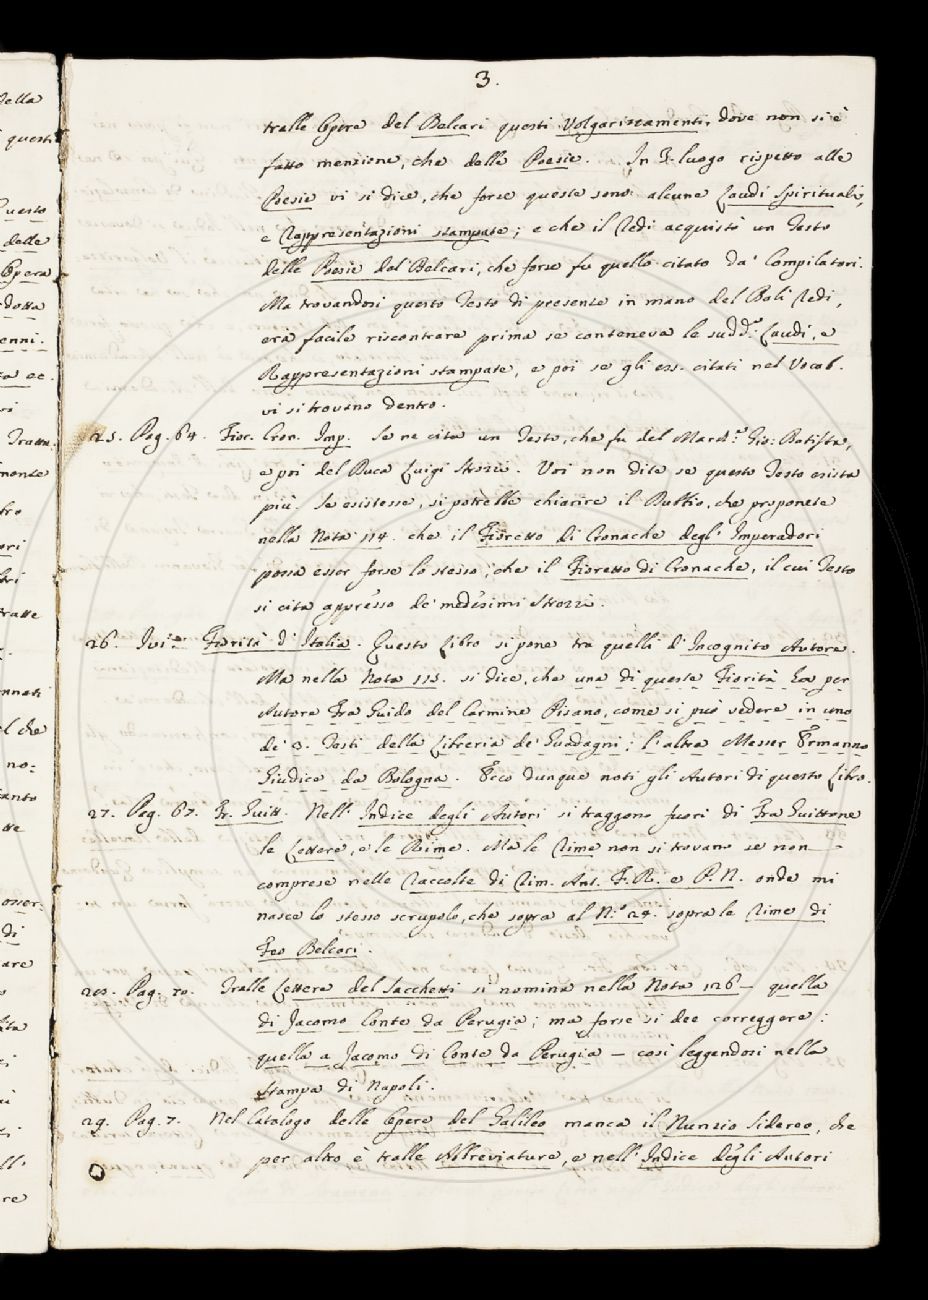 3.
tralle Opere del Belcari questi Volgarizzamenti, dove non si è
fatto menzione, che delle Poesie. In 3.° luogo rispetto alle
Poesie vi si dice, che forse queste sono alcune Laudi Spirituali,
e Rappresentazioni stampate; e che il Redi acquistò un Testo
delle Poesie del Belcari, che forse fu quello citato da' Compilatori.
Ma trovandosi questo Testo di presente in mano del Balì Redi,
era facile riscontrare prima se conteneva le sudd.e Laudi, e
Rappresentazioni stampate, e poi se gli ess. citati nel Vocab.
vi si trovano dentro.
25. Pag. 64. Fior. Cron. Imp. Se ne cita un Testo, che fu del March.e Gio: Batista,
e poi del Duca Luigi Strozzi. Voi non dite se questo Testo esista
più. Se esistesse, si potrebbe chiarire il Dubbio, che proponete
nella Nota 114. che il Fioretto di Cronache degl' Imperadori
possa esser forse lo stesso, che il Fioretto di Cronache, il cui Testo
si cita appresso de' medesimi Strozzi.
26. Ivi. Fiorità d' Italia. Questo Libro si pone tra quelli d' Incognito Autore.
Ma nella Nota 115. si dice, che una di queste Fiorità ha per
Autore Fra Guido del Carmine Pisano, come si può vedere in uno
de' 3. Testi della Libreria de' Guadagni; l' altra Messer Ermanno
Giudice da Bologna. Ecco dunque noti gli Autori di questo Libro.
27. Pag. 67. Fr. Guitt. Nell' Indice degli Autori si traggono fuori di Fra Guittone
le Lettere, e le Rime. Ma le Rime non si trovano se non
comprese nelle Raccolte di Rim. Ant. F. R. e P. N. onde mi
nasce lo stesso scrupolo, che sopra al N.° 24. sopra le Rime di
Feo Belcari.
28. Pag. 70. Tralle Lettere del Sacchetti si nomina nella Nota 126 — quella
di Jacomo Conte da Perugia; ma forse si dee correggere:
quella a Jacomo di Conte da Perugia — così leggendosi nella
stampa di Napoli.
29. Pag. 7. Nel Catalogo delle Opere del Galileo manca il Nunzio Sidereo, che
per altro è tralle Abbreviature, e nell' Indice degli Autori